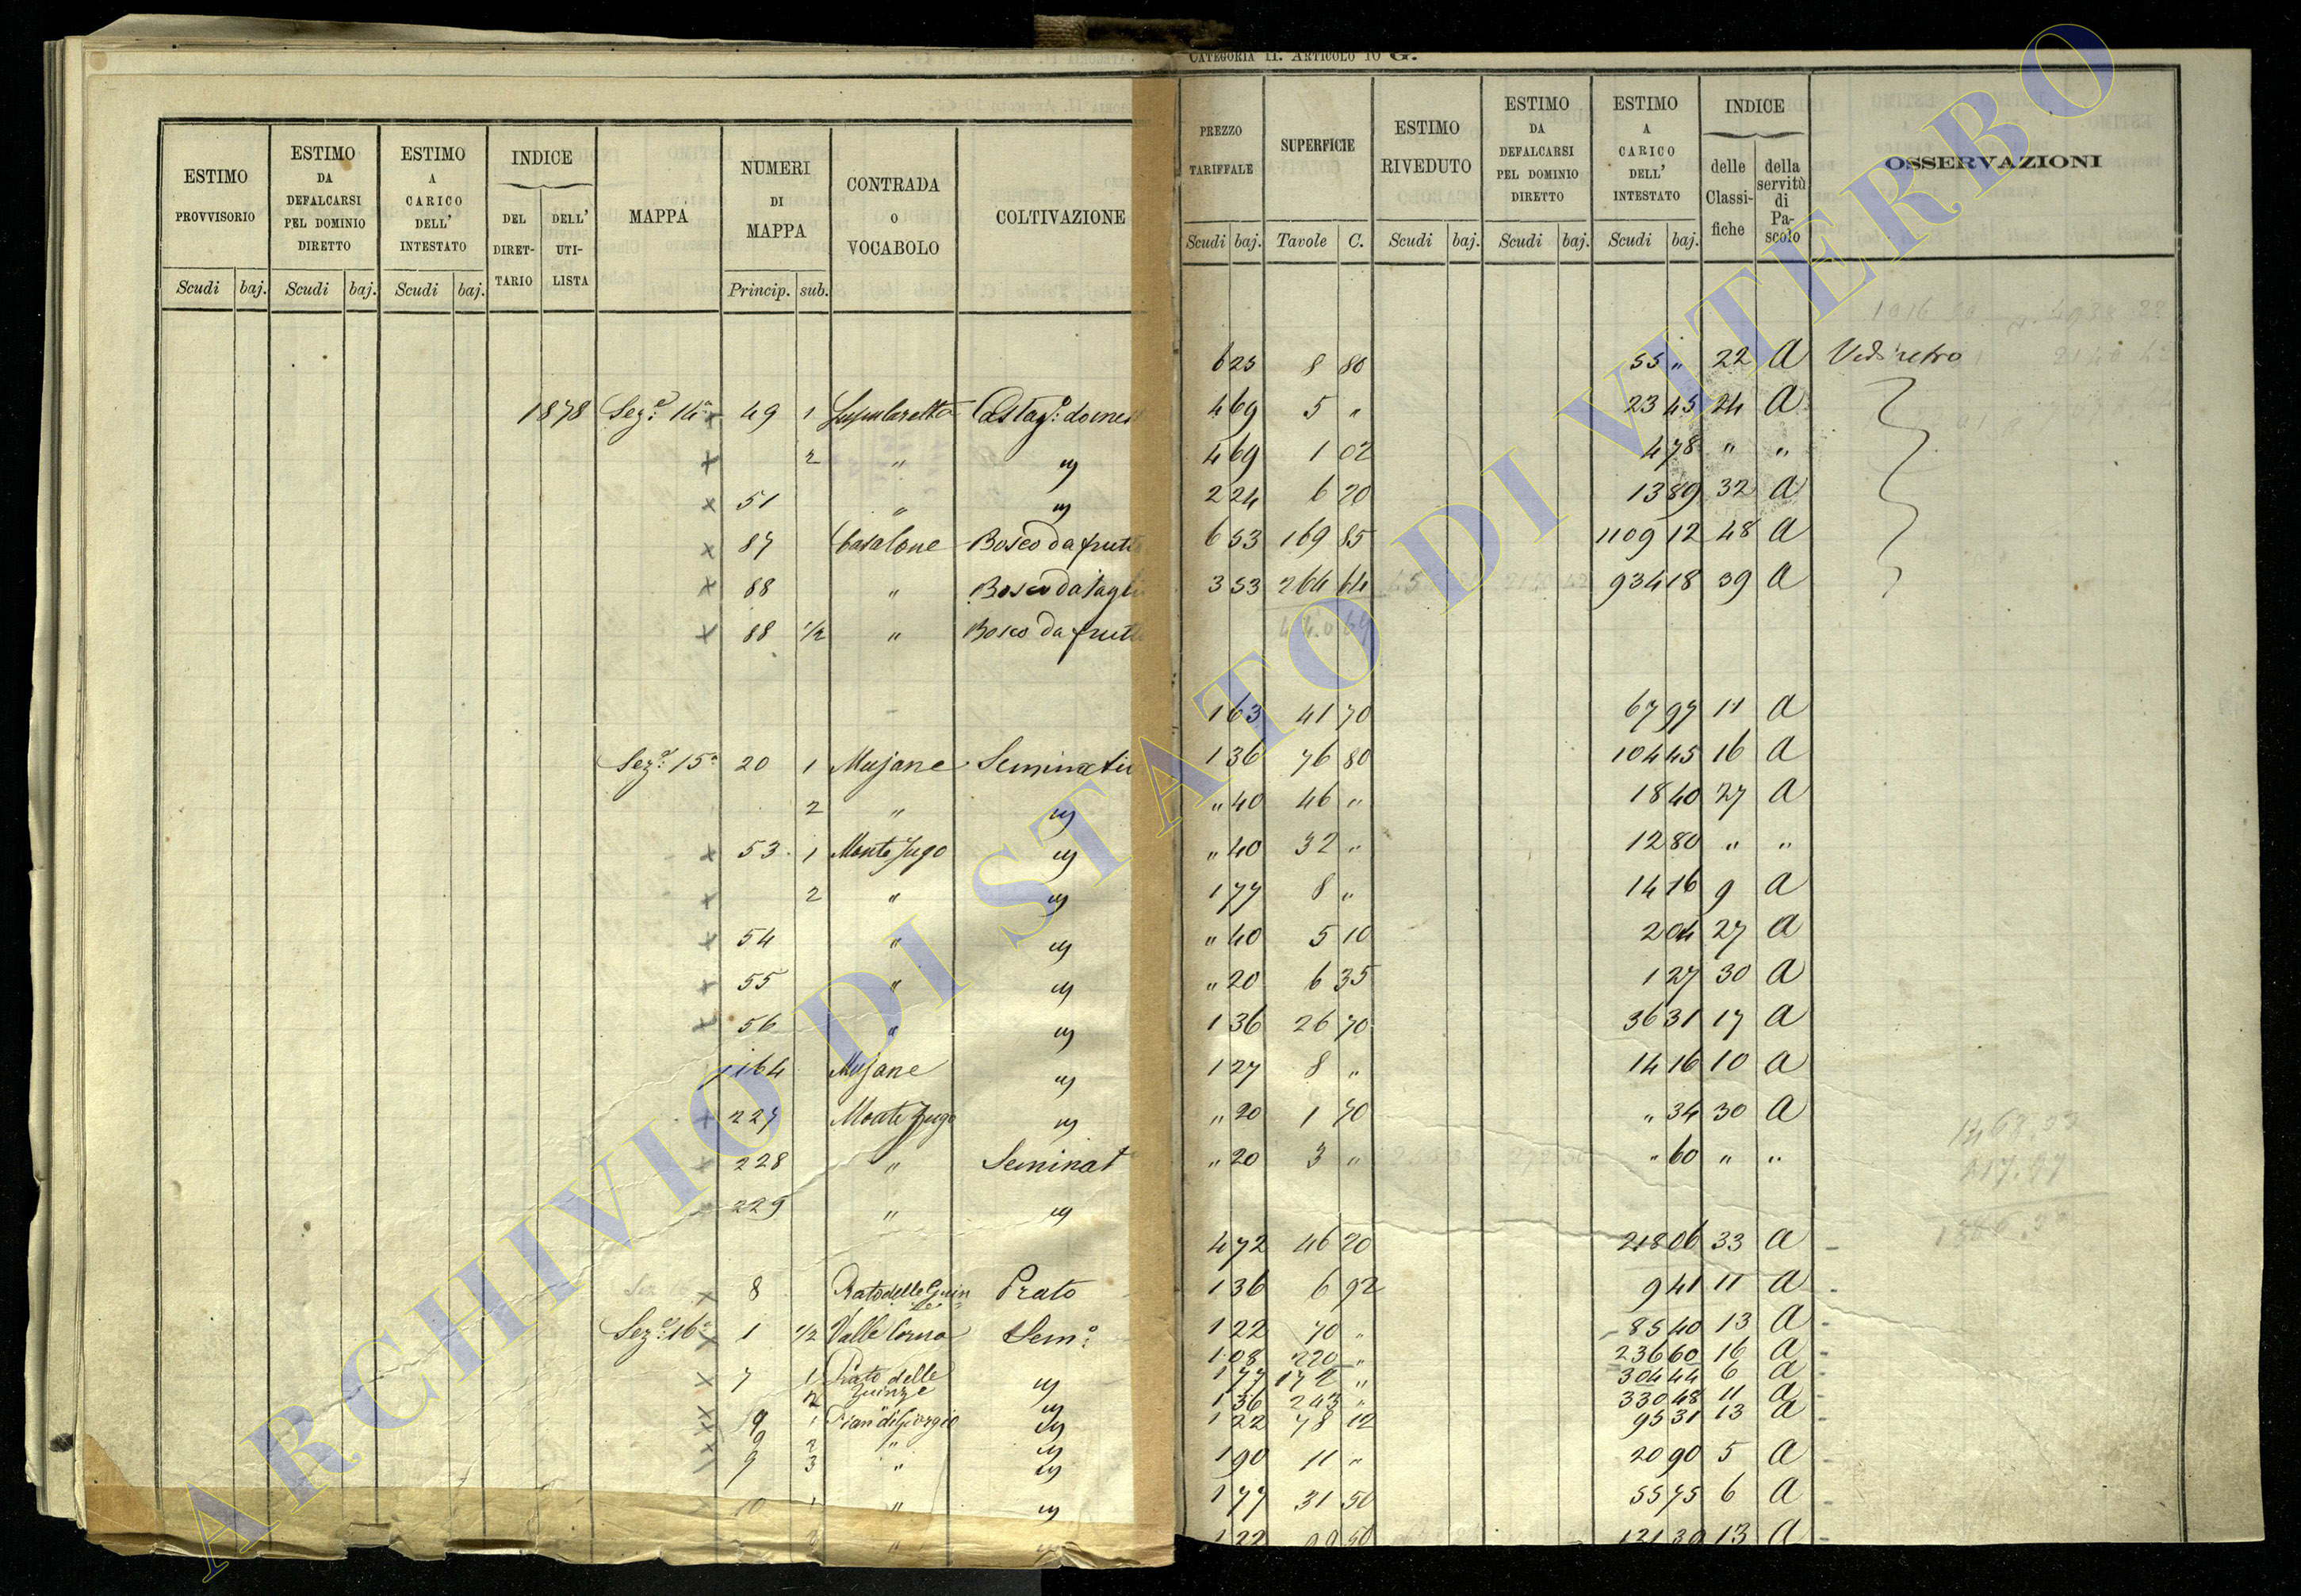 CATEGORIA II. ARTICOLO 10 G.
ESTIMO PROVVISORIO Scudi baj.
ESTIMO DA DEFALCARSI PEL DOMINIO DIRETTO Scudi baj.
ESTIMO A CARICO DELL' INTESTATO Scudi baj.
INDICE DEL DIRET-TARIO DELL' UTI-LISTA
MAPPA
NUMERI DI MAPPA Princip. sub.
CONTRADA O VOCABOLO
COLTIVAZIONE
1878 Sez.e 14a 49 1 Castag.o domes
2 " "
51 " "
87 Casalone Bosco da frutt
88 " Bosco da tagli
88 1/2 " Bosco da frutt
Sez.e 15a 20 1 Mujane Seminativ
2 " "
53 1 Monte Jugo "
2 " "
54 " "
55 " "
56 " "
164 Mujane "
227 Monte Jugo "
228 " Seminat
229 " "
8 Prato delle Quin Prato
Sez.e 16a 1 1/2 Valle Sem.o
7 1 Prato delle "
2 Quinze "
9 1 Pian di Giorgio "
9 2 " "
9 3 " "
10 1 " "
PREZZO TARIFFALE Scudi baj.
SUPERFICIE Tavole C.
ESTIMO RIVEDUTO Scudi baj.
ESTIMO DA DEFALCARSI PEL DOMINIO DIRETTO Scudi baj.
ESTIMO A CARICO DELL' INTESTATO Scudi baj.
INDICE delle Classi-fiche della servitù di Pa-scolo
OSSERVAZIONI
6 25 8 80 55 " 22 A Vedi retro
4 69 5 " 23 45 24 A
4 69 1 02 4 78 " "
2 24 6 20 13 89 32 A
6 53 169 85 1109 12 48 A
3 53 264 64 934 18 39 A
1 63 41 70 67 97 11 A
1 36 76 80 104 45 16 A
" 40 46 " 18 40 27 A
" 40 32 " 12 80 " "
1 77 8 " 14 16 9 A
" 40 5 10 2 04 27 A
" 20 6 35 1 27 30 A
1 36 26 70 36 31 17 A
1 27 8 " 14 16 10 A
" 20 1 70 " 34 30 A
" 20 3 " " 60 " "
4 72 46 20 218 06 33 A
1 36 6 92 9 41 11 A
1 22 70 " 85 40 13 A
1 08 220 " 236 60 16 A
1 77 172 " 304 44 6 A
1 36 243 " 330 48 11 A
1 22 78 12 95 31 13 A
1 90 11 " 20 90 5 A
1 77 31 50 55 75 6 A
1 22 99 50 121 39 13 A
ARCHIVIO DI STATO DI VITERBO